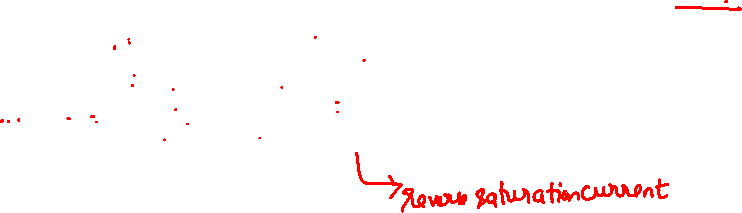 Reverse saturation current